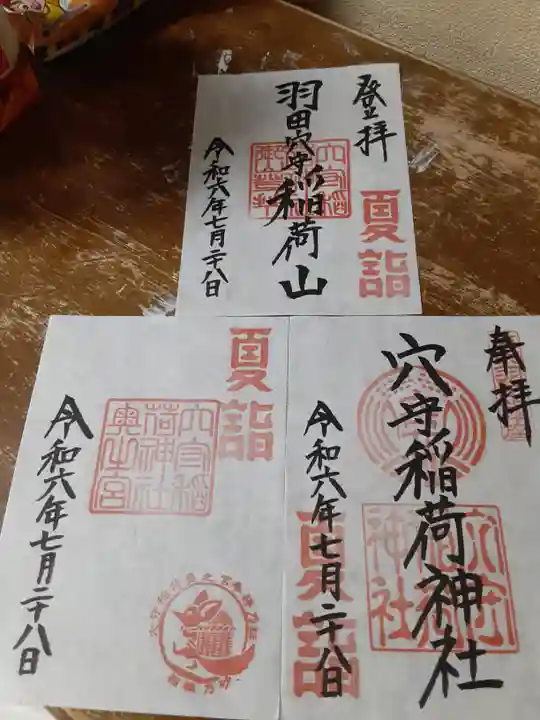 登拝
夏詣
羽田穴守稲荷山
令和六年七月二十八日
奉拝
穴守稲荷神社
夏詣
令和六年七月二十八日
夏詣
穴守稲
荷神社
奥之宮
令和六年七月二十八日